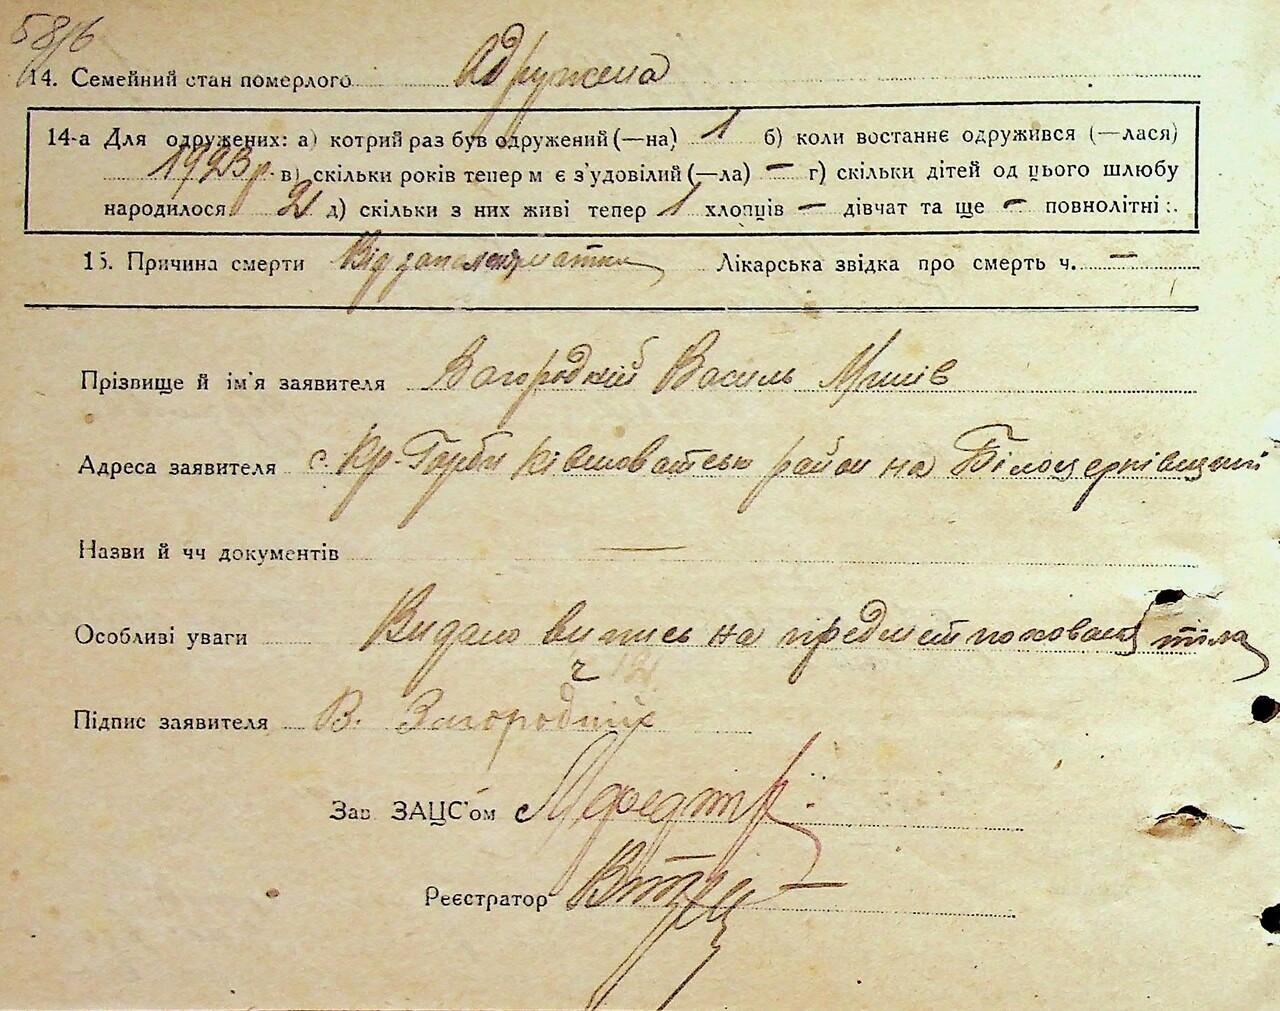 58/6
14. Семейний стан померлого Одружена
14-а Для одружених: а) котрий раз був одружений (—на) 1 б) коли востаннє одружився (—лася)
1923 р. в) скільки років тепер м є з'удовілий (—ла) – г) скільки дітей од цього шлюбу
народилося 2 д) скільки з них живі тепер 1 хлопців – дівчат та ще – повнолітні:.
15. Причина смерти Від запалення матки Лікарська звідка про смерть ч. –
Прізвище й ім'я заявителя Загородній Василь
Адреса заявителя с. Кр-Горби район на Білоцерківщині
Назви й чч документів —
Особливі уваги Видано випись на предмет поховання тіла
ч
Підпис заявителя В. Загородній
Зав ЗАЦС'ом
Реєстратор